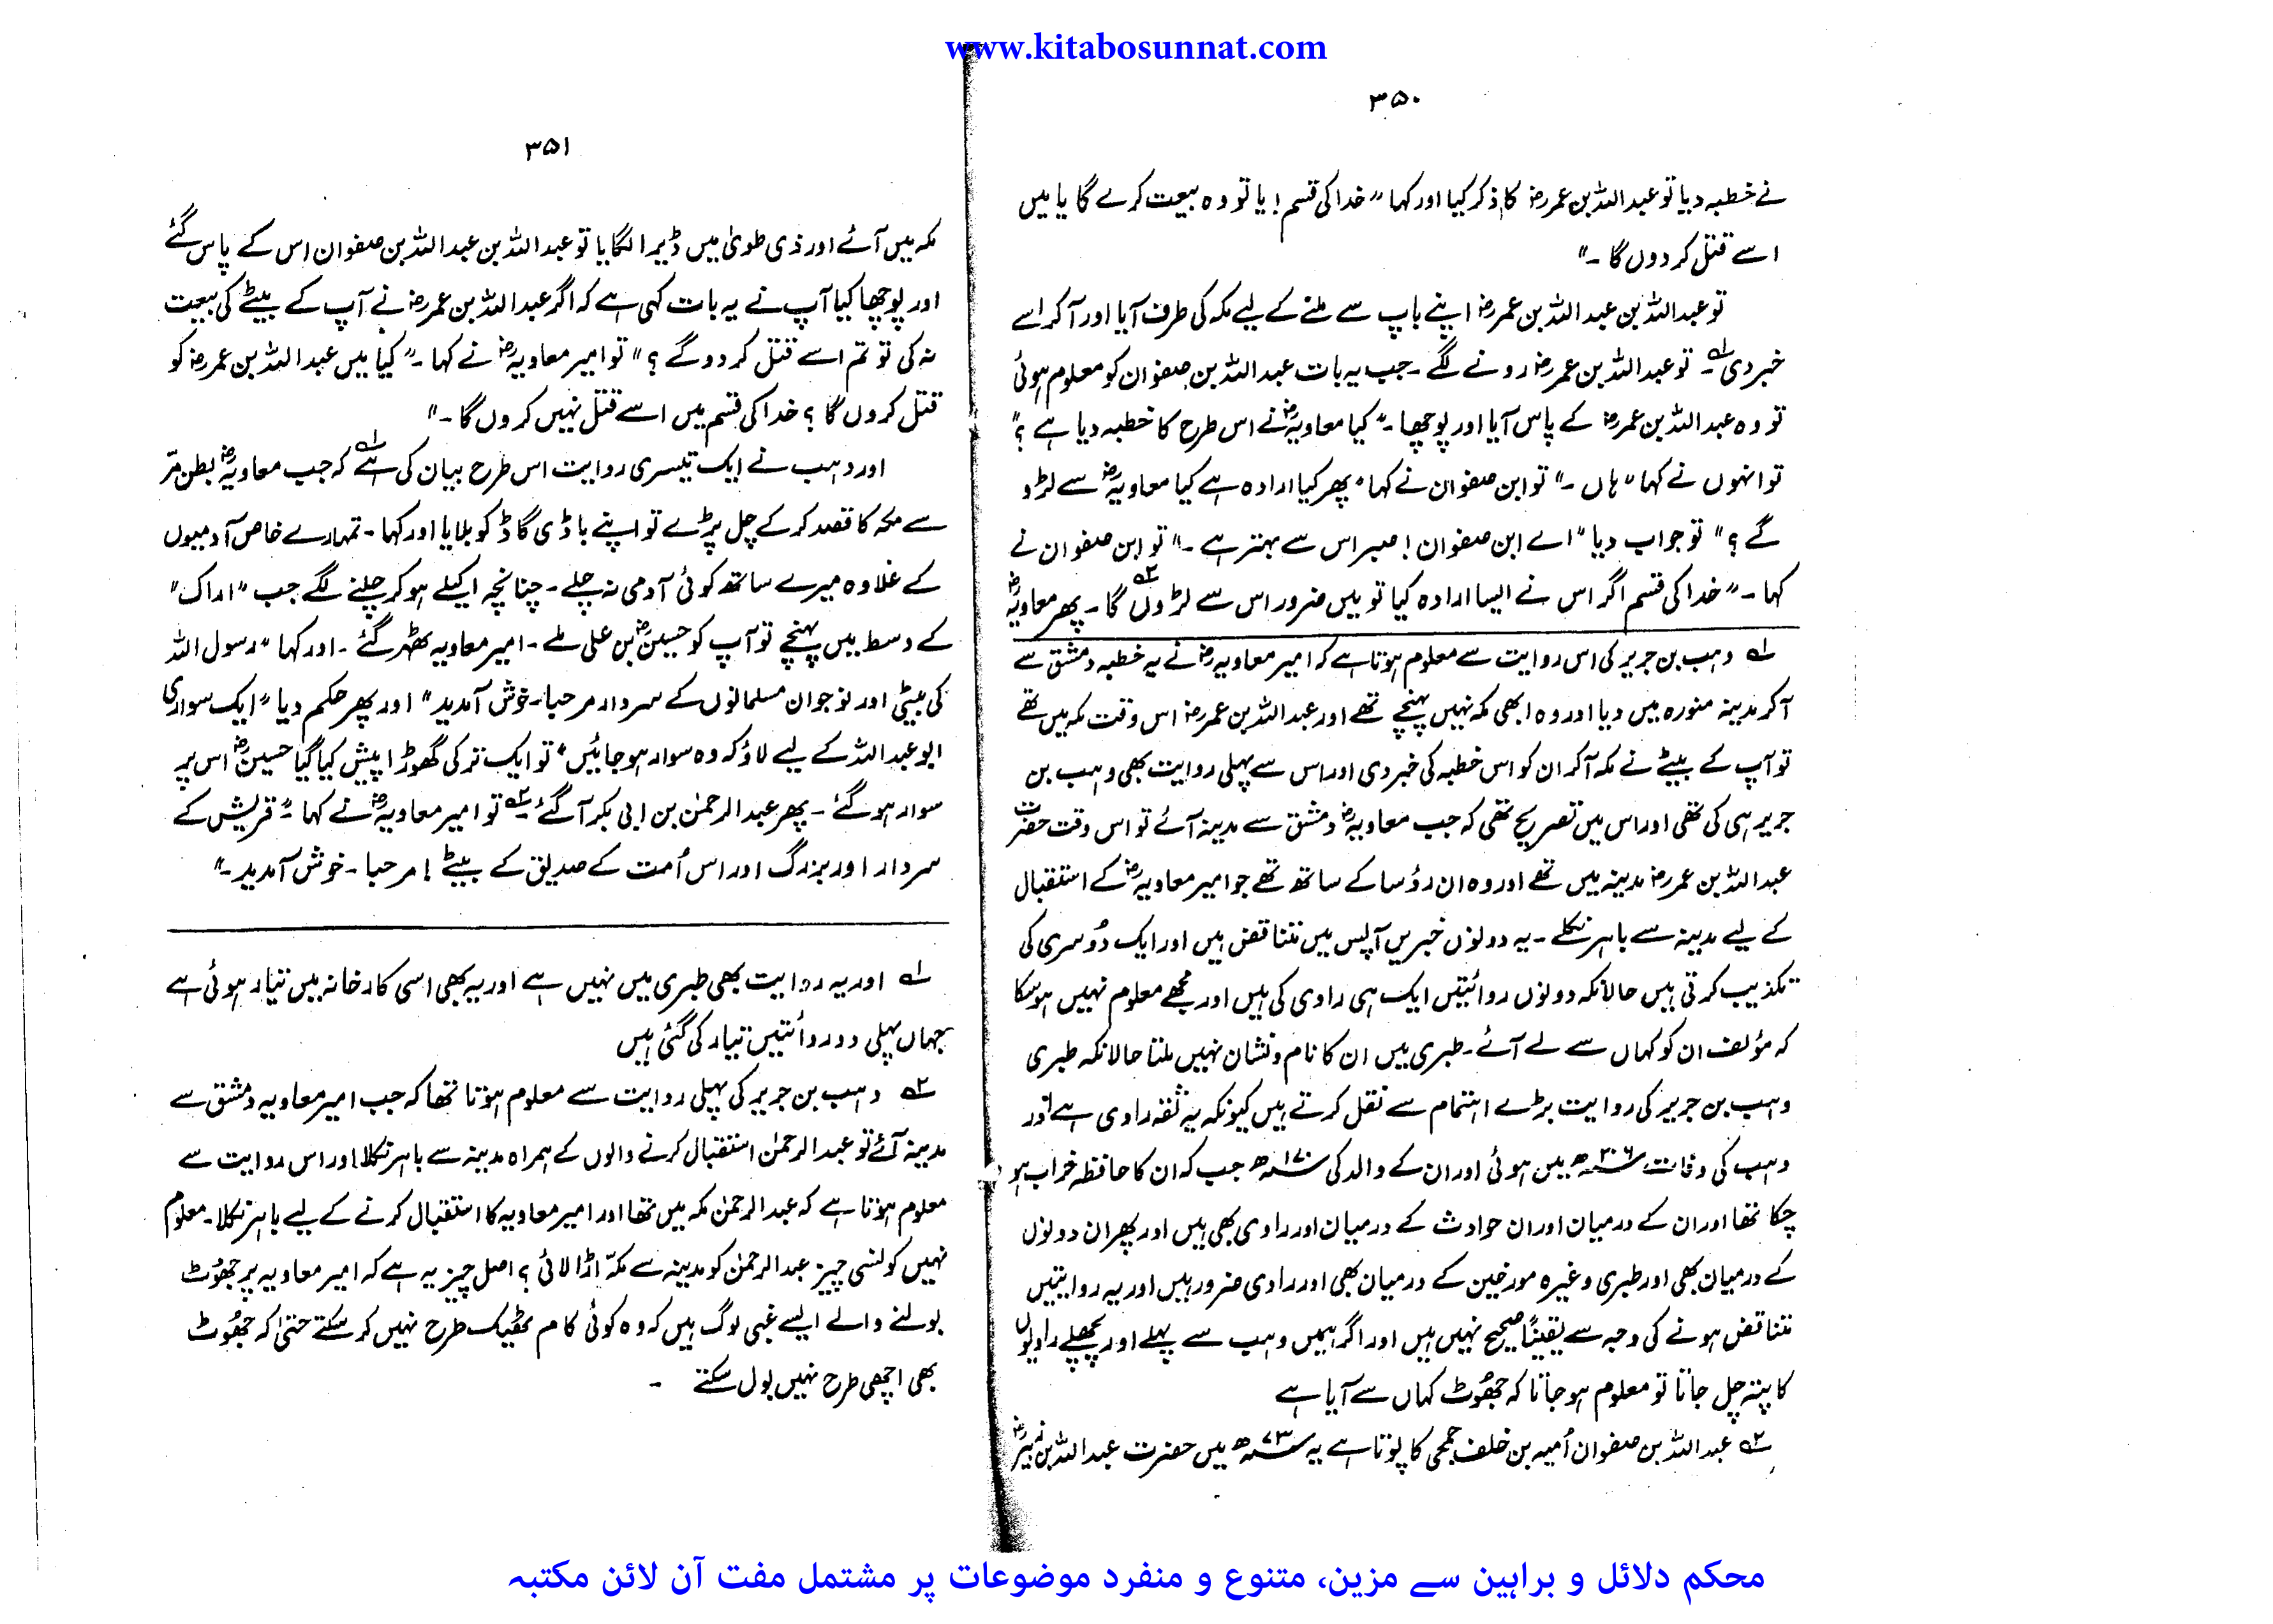 www.kitabosunnat.com
۳۵۰
نے خطبہ دیا تو عبداللہ بن عمررضؓ کا ذکر کیا اور کہا ”خدا کی قسم! یا تو وہ بیعت کرے گا یا میں
اسے قتل کر دوں گا ۔“
تو عبداللہ بن عبداللہ بن عمررضؓ اپنے باپ سے ملنے کے لیے مکہ کی طرف آیا اور آکر اسے
خبر دی۔ لہ تو عبداللہ بن عمررضؓ رونے لگے ۔ جب یہ بات عبداللہ بن صفوان کو معلوم ہوئی
تو وہ عبداللہ بن عمررضؓ کے پاس آیا اور پوچھا ۔”کیا معاویہؓ نے اس طرح کا خطبہ دیا ہے ؟“
تو انہوں نے کہا ”ہاں ۔“ تو ابن صفوان نے کہا ”پھر کیا ارادہ ہے کیا معاویہؓ سے لڑو
گے ؟“ تو جواب دیا ”اے ابن صفوان! صبر اس سے بہتر ہے ۔“ تو ابن صفوان نے
کہا ۔”خدا کی قسم اگر اس نے ایسا ارادہ کیا تو میں ضرور اس سے لڑوں گا ۲ہ ۔ پھر معاویہؓ
لہ وہب بن جریر کی اس روایت سے معلوم ہوتا ہے کہ امیر معاویہرضؓ نے یہ خطبہ دمشق سے
آکر مدینہ منورہ میں دیا اور وہ ابھی مکہ نہیں پہنچے تھے اور عبداللہ بن عمررضؓ اس وقت مکہ میں تھے
تو آپ کے بیٹے نے مکہ آکر ان کو اس خطبہ کی خبر دی اور اس سے پہلی روایت بھی وہب بن
جریر ہی کی تھی اور اس میں تصریح تھی کہ جب معاویہؓ دمشق سے مدینہ آئے تو اس وقت حضرت
عبداللہ بن عمررضؓ مدینہ میں تھے اور وہ ان رؤسا کے ساتھ تھے جو امیر معاویہؓ کے استقبال
کے لیے مدینہ سے باہر نکلے ۔ یہ دونوں خبریں آپس میں متناقض ہیں اور ایک دُوسری کی
تکذیب کرتی ہیں حالانکہ دونوں روائتیں ایک ہی راوی کی ہیں اور مجھے معلوم نہیں ہو سکا
کہ مؤلف ان کو کہاں سے لے آئے ۔ طبری میں ان کا نام و نشان نہیں ملتا حالانکہ طبری
وہب بن جریر کی روایت بڑے اہتمام سے نقل کرتے ہیں کیونکہ یہ ثقہ راوی ہے اور
وہب کی وفات ۲۰۶ھ میں ہوئی اور ان کے والد کی ۱۷۰ھ جب کہ ان کا حافظہ خراب ہو
چکا تھا اور ان کے درمیان اور ان حوادث کے درمیان اور راوی بھی ہیں اور پھر ان دونوں
کے درمیان بھی اور طبری وغیرہ مورخین کے درمیان بھی اور راوی ضرور ہیں اور یہ روایتیں
متناقض ہونے کی وجہ سے یقیناً صحیح نہیں ہیں اور اگر ہمیں وہب سے پہلے اور پچھلے راویوں
کا پتہ چل جاتا تو معلوم ہو جاتا کہ جھُوٹ کہاں سے آیا ہے
۲ہ عبداللہ بن صفوان اُمیہ بن خلف جمحی کا پوتا ہے یہ ۷۳ھ میں حضرت عبداللہ بن زبیرؓ
۳۵۱
مکہ میں آئے اور ذی طویٰ میں ڈیرا لگایا تو عبداللہ بن عبداللہ بن صفوان اس کے پاس گئے
اور پوچھا کیا آپ نے یہ بات کہی ہے کہ اگر عبداللہ بن عمررضؓ نے آپ کے بیٹے کی بیعت
نہ کی تو تم اسے قتل کر دو گے ؟“ تو امیر معاویہؓ نے کہا ۔”کیا میں عبداللہ بن عمررضؓ کو
قتل کروں گا ؟ خدا کی قسم میں اسے قتل نہیں کروں گا ۔“
اور وہب نے ایک تیسری روایت اس طرح بیان کی ہے لہ کہ جب معاویہؓ بطن مرّ
سے مکہ کا قصد کر کے چل پڑے تو اپنے باڈی گاڈ کو بلایا اور کہا ۔ تمہارے خاص آدمیوں
کے علاوہ میرے ساتھ کوئی آدمی نہ چلے ۔ چنانچہ اکیلے ہو کر چلنے لگے جب ”اراک“
کے وسط میں پہنچے تو آپ کو حسینؓ بن علی ملے ۔ امیر معاویہ ٹھہر گئے ۔ اور کہا ”رسول اللہ
کی بیٹی اور نوجوان مسلمانوں کے سردار مرحبا۔ خوش آمدید“ اور پھر حکم دیا ”ایک سواری
ابو عبداللہ کے لیے لاؤ کہ وہ سوار ہو جائیں“ تو ایک ترکی گھوڑا پیش کیا گیا حسینؓ اس پر
سوار ہو گئے ۔ پھر عبدالرحمٰن بن ابی بکر آ گئے ۲ہ ۔ تو امیر معاویہؓ نے کہا ۔”قریش کے
سردار اور بزرگ اور اس اُمت کے صدیق کے بیٹے ! مرحبا ۔ خوش آمدید ۔“
لہ اور یہ روایت بھی طبری میں نہیں ہے اور یہ بھی اسی کارخانہ میں تیار ہوئی ہے
جہاں پہلی دو روائتیں تیار کی گئی ہیں
۲ہ وہب بن جریر کی پہلی روایت سے معلوم ہوتا تھا کہ جب امیر معاویہ دمشق سے
مدینہ آئے تو عبدالرحمٰن استقبال کرنے والوں کے ہمراہ مدینہ سے باہر نکلا اور اس روایت سے
معلوم ہوتا ہے کہ عبدالرحمٰن مکہ میں تھا اور امیر معاویہ کا استقبال کرنے کے لیے باہر نکلا۔ معلوم
نہیں کونسی چیز عبدالرحمٰن کو مدینہ سے مکہّ اڑا لائی ؟ اصل چیز یہ ہے کہ امیر معاویہ پر جھوُٹ
بولنے والے ایسے غبی لوگ ہیں کہ وہ کوئی کام ٹھیک طرح نہیں کر سکتے حتیٰ کہ جھُوٹ
بھی اچھی طرح نہیں بول سکتے ۔
محکم دلائل و براہین سے مزین، متنوع و منفرد موضوعات پر مشتمل مفت آن لائن مکتبہ